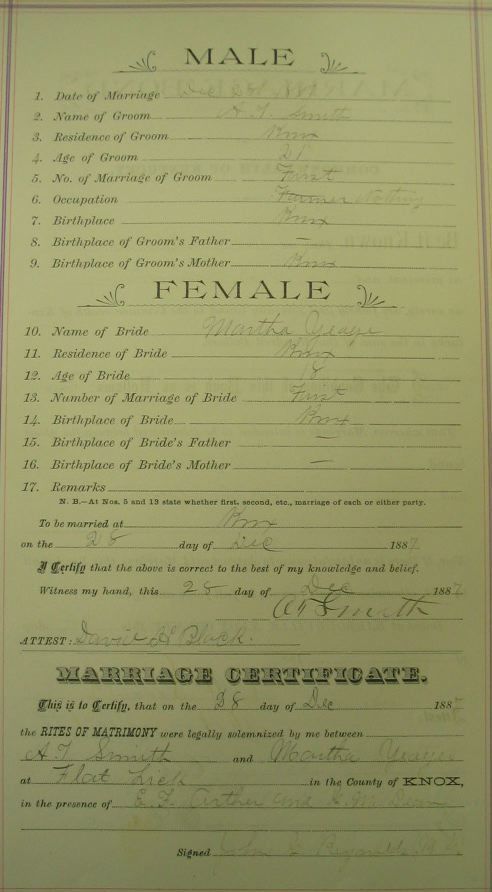 MALE
1. Date of Marriage Dec 28th 1887
2. Name of Groom A. T. Smith
3. Residence of Groom Knox
4. Age of Groom 21
5. No. of Marriage of Groom First
6. Occupation Farmer Nothing
7. Birthplace Knox
8. Birthplace of Groom's Father —
9. Birthplace of Groom's Mother Knox
FEMALE
10. Name of Bride Martha Yeage
11. Residence of Bride Knox
12. Age of Bride 18
13. Number of Marriage of Bride First
14. Birthplace of Bride Knox
15. Birthplace of Bride's Father —
16. Birthplace of Bride's Mother —
17. Remarks
N. B.—At Nos. 5 and 13 state whether first, second, etc., marriage of each or either party.
To be married at Knox
on the 28 day of Dec 1887
I Certify that the above is correct to the best of my knowledge and belief.
Witness my hand, this 28 day of Dec 1887
AT Smith
ATTEST: David H Black.
MARRIAGE CERTIFICATE.
This is to Certify, that on the 28 day of Dec 1887
the RITES OF MATRIMONY were legally solemnized by me between
A. T. Smith and Martha Yeage
at Flat Lick in the County of KNOX,
in the presence of E. F. Arther and
Signed John Reynolds